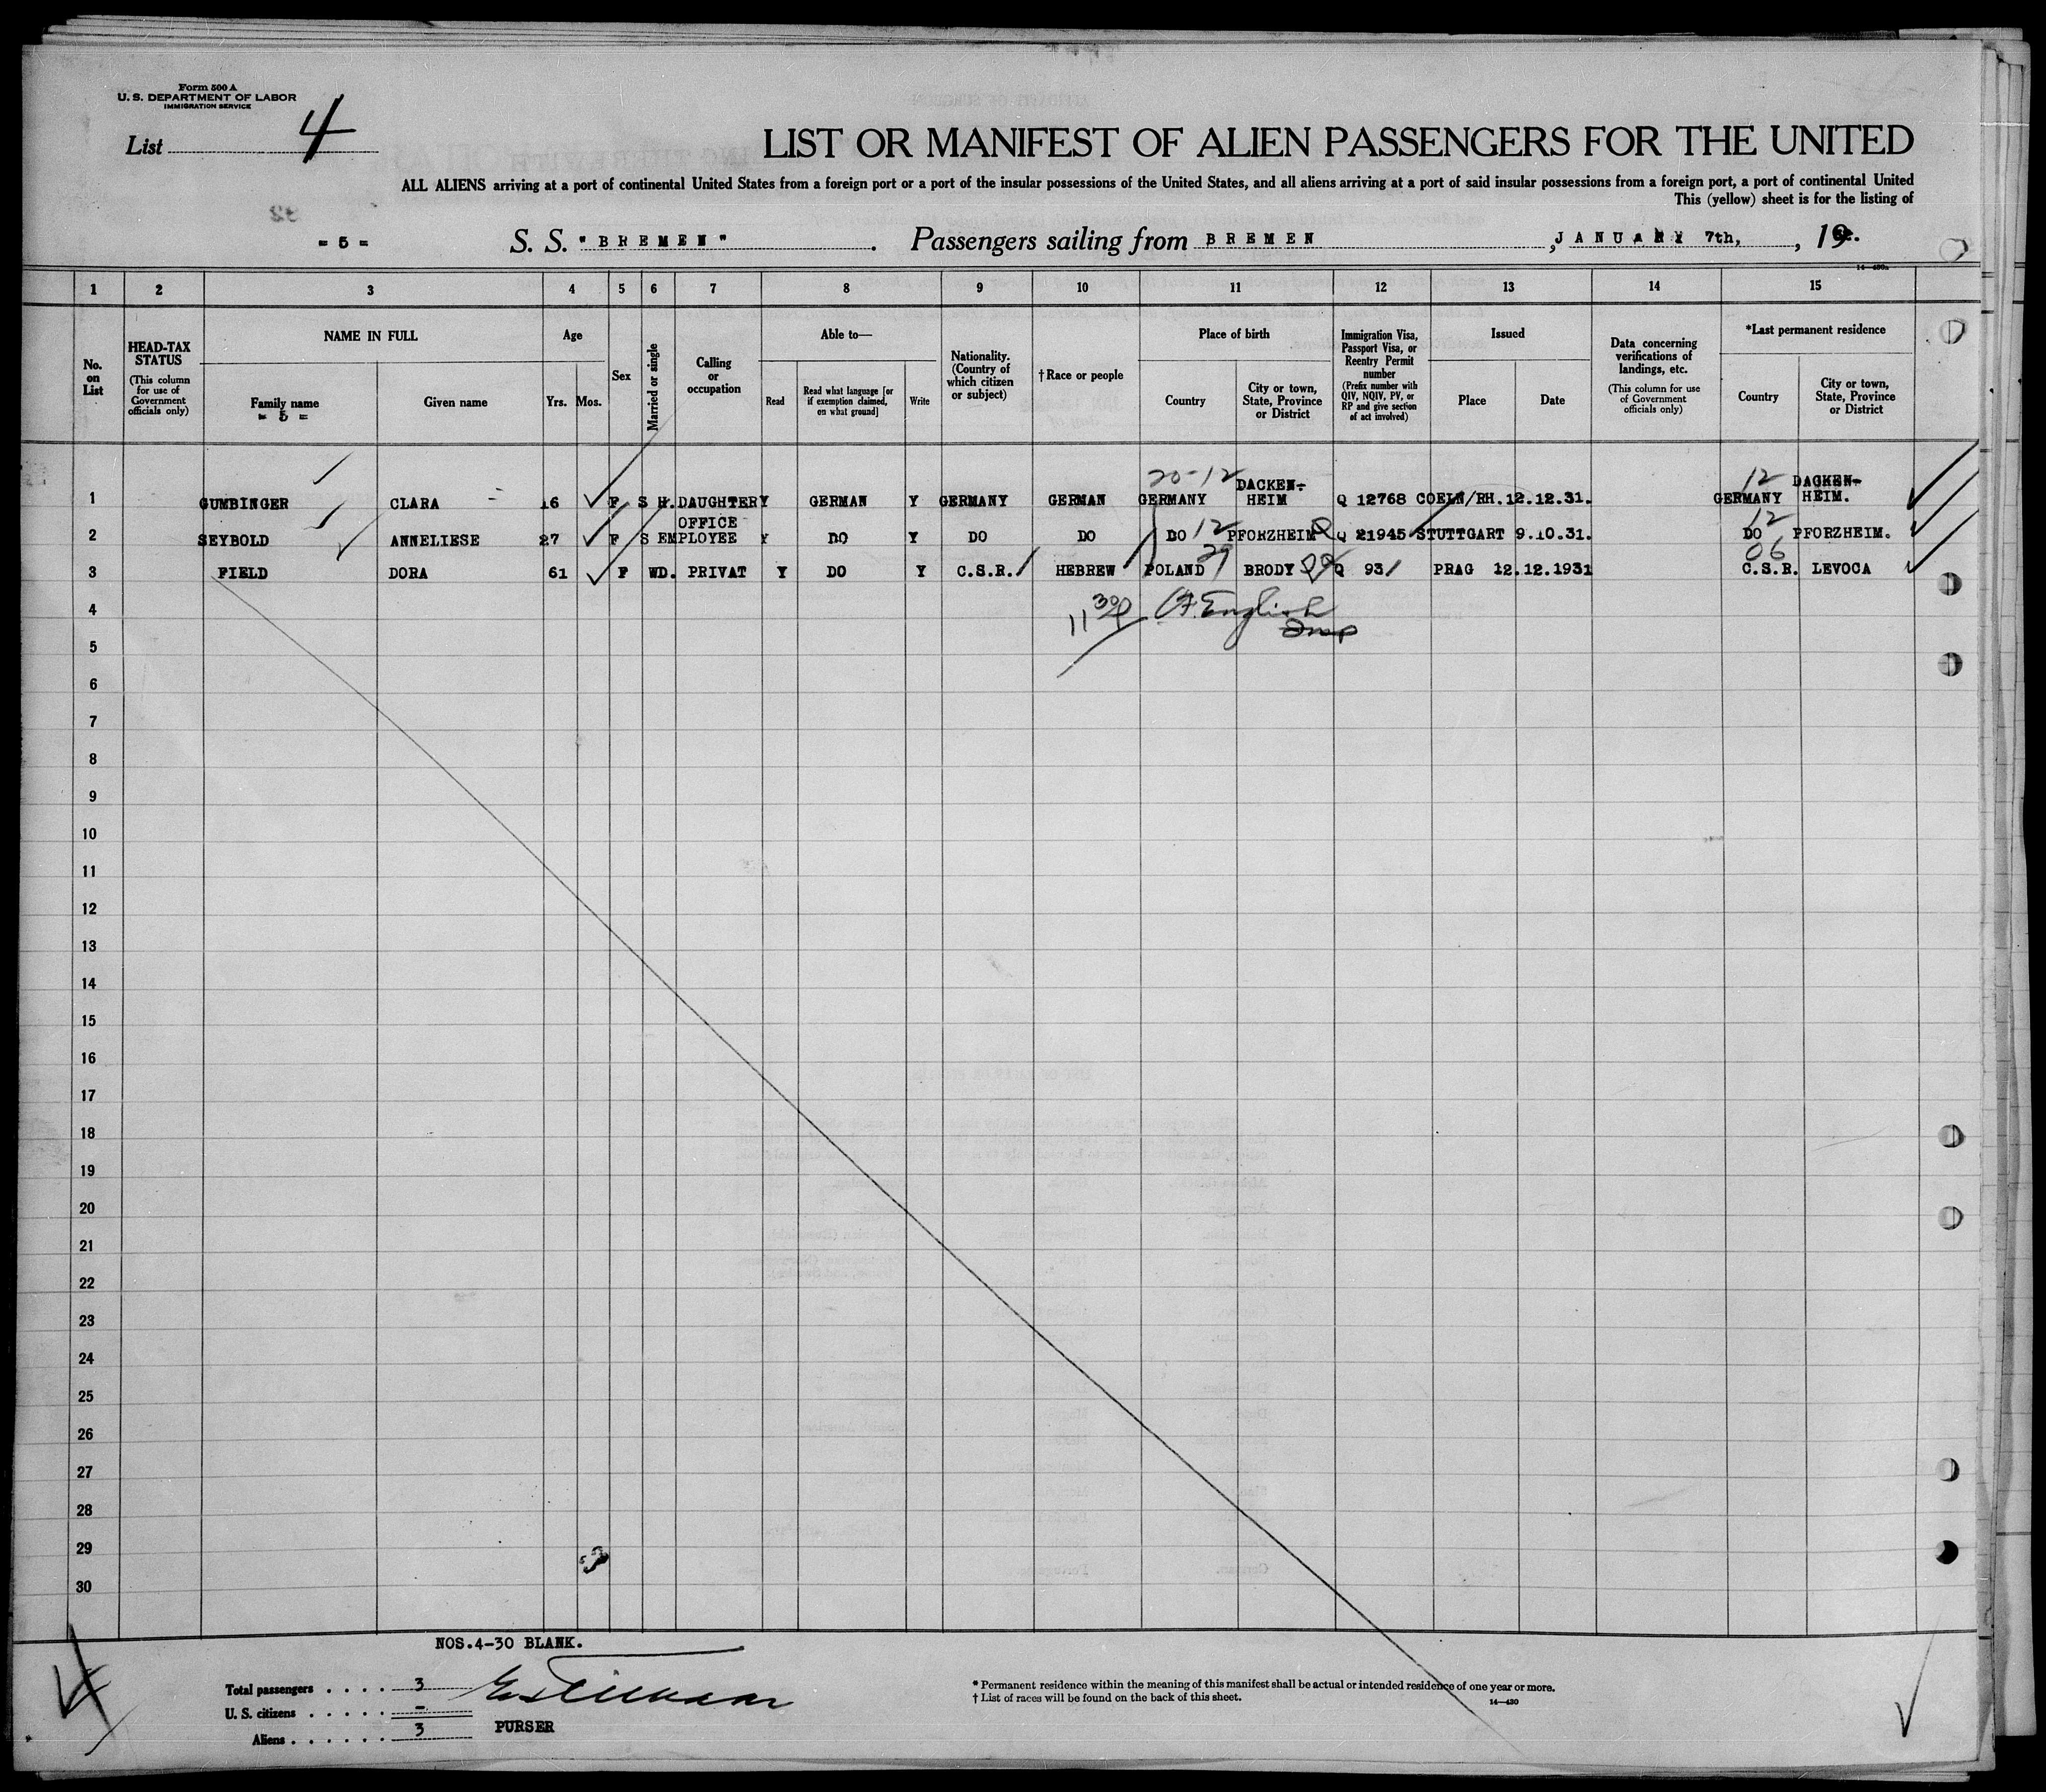 Form 500 A
U. S. DEPARTMENT OF LABOR
IMMIGRATION SERVICE
List 4
LIST OR MANIFEST OF ALIEN PASSENGERS FOR THE UNITED
ALL ALIENS arriving at a port of continental United States from a foreign port or a port of the insular possessions of the United States, and all aliens arriving at a port of said insular possessions from a foreign port, a port of continental United
This (yellow) sheet is for the listing of
= 5 = S. S. "BREMEN". Passengers sailing from BREMEN, JANUARY 7th, , 19
14—430a
1 2 3 4 5 6 7 8 9 10 11 12 13 14 15
No. on List
HEAD-TAX STATUS
(This column for use of Government officials only)
NAME IN FULL
Family name
= 5 =
Given name
Age
Yrs. Mos.
Sex
Married or single
Calling or occupation
Able to—
Read
Read what language [or if exemption claimed, on what ground]
Write
Nationality. (Country of which citizen or subject)
† Race or people
Place of birth
Country
City or town, State, Province or District
Immigration Visa, Passport Visa, or Reentry Permit number
(Prefix number with QIV, NQIV, PV, or RP and give section of act involved)
Issued
Place
Date
Data concerning verifications of landings, etc.
(This column for use of Government officials only)
*Last permanent residence
Country
City or town, State, Province or District
20-12 12
1 GUMBINGER CLARA 16 F S H.DAUGHTER Y GERMAN Y GERMANY GERMAN GERMANY DACKEN-HEIM Q 12768 COELN/RH. 12.12.31. GERMANY DACKEN-HEIM.
12 12
2 SEYBOLD ANNELIESE 27 F S OFFICE EMPLOYEE Y DO Y DO DO DO PFORZHEIM Q 21945 STUTTGART 9.10.31. DO PFORZHEIM.
29 06
3 FIELD DORA 61 F WD. PRIVAT Y DO Y C.S.R. HEBREW POLAND BRODY Q 93 PRAG 12.12.1931 C.S.R. LEVOCA
4 11 30 English Insp
5
6
7
8
9
10
11
12
13
14
15
16
17
18
19
20
21
22
23
24
25
26
27
28
29
30
NOS.4-30 BLANK.
Total passengers . . . . 3
U. S. citizens . . . . . –
Aliens . . . . . . 3
PURSER
* Permanent residence within the meaning of this manifest shall be actual or intended residence of one year or more.
† List of races will be found on the back of this sheet.
14—430